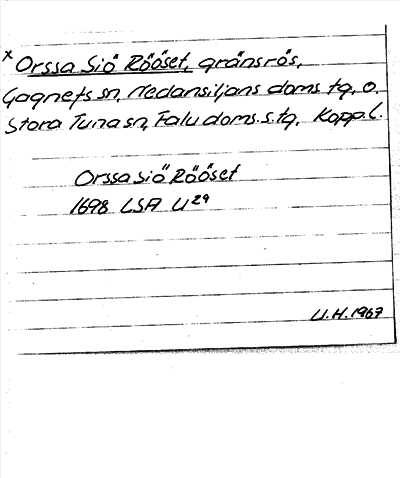 x Orssa Siö Röőset, gränsrös,
Gagnefs sn, Nedansiljans doms tg. o.
Stora Tuna sn, Falu doms.s.tg. Kopp.l.
Orssa Siö Röőset
1698 LSA U 29
U.H. 1967